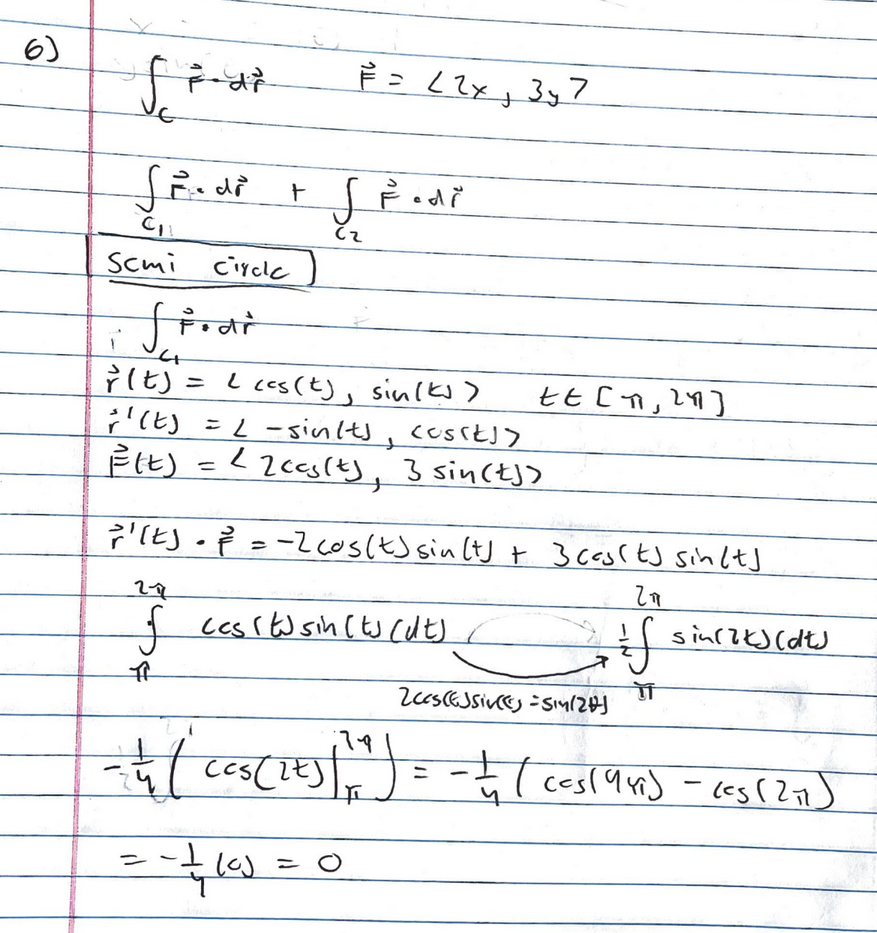 6)
∫_C F⃗ · dr⃗    F⃗ = <2x, 3y>
∫_C1 F⃗ · dr⃗ + ∫_C2 F⃗ · dr⃗
Semi circle
∫_C1 F⃗ · dr⃗
r⃗(t) = <cos(t), sin(t)>    t∈[π, 2π]
r⃗'(t) = <-sin(t), cos(t)>
F⃗(t) = <2cos(t), 3sin(t)>
r⃗'(t) · F⃗ = -2cos(t)sin(t) + 3cos(t)sin(t)
∫_π^2π cos(t)sin(t)(dt)    ½∫_π^2π sin(2t)(dt)
2cos(t)sin(t) = sin(2θ)
-1/4 (cos(2t)|_π^2π) = -1/4 (cos(4π) - cos(2π)
= -1/4 (0) = 0